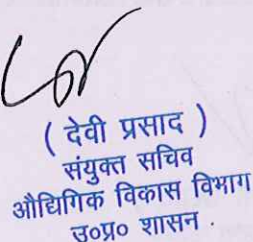 ( देवी प्रसाद )
संयुक्त सचिव
औद्योगिक विकास विभाग
उ०प्र० शासन .